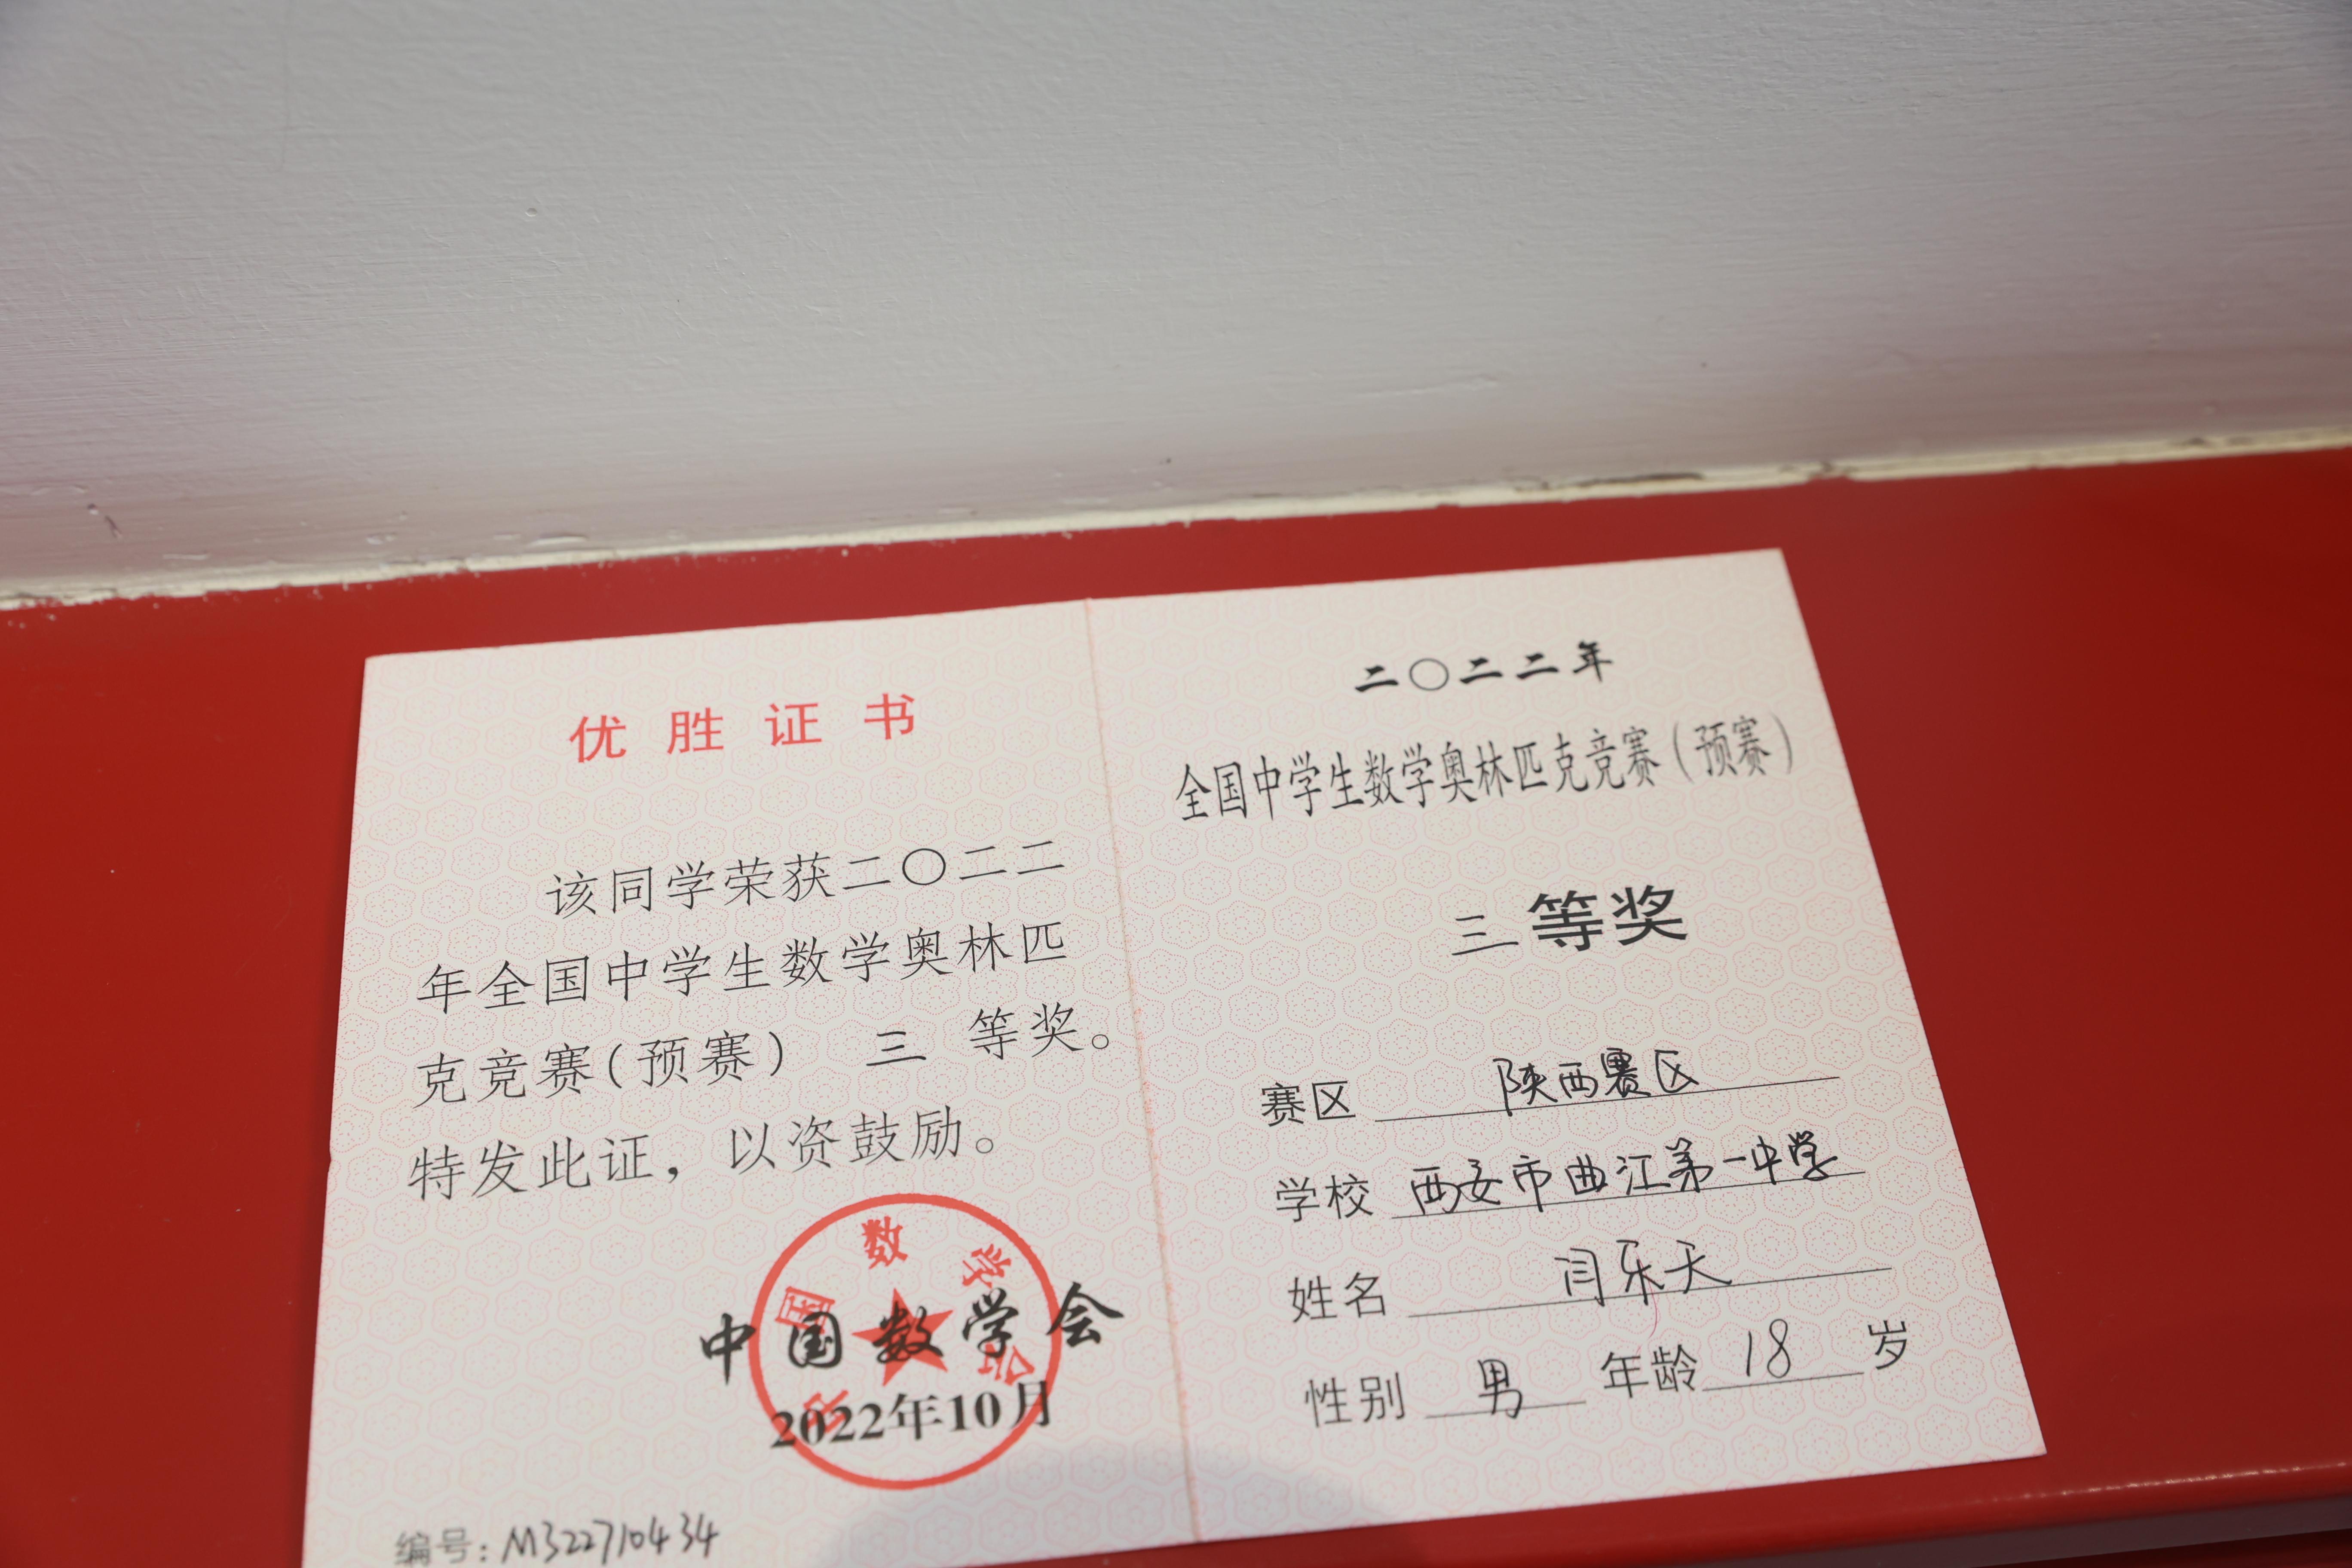 优胜证书
该同学荣获二〇二二
年全国中学生数学奥林匹
克竞赛(预赛) 三 等奖。
特发此证，以资鼓励。
中国数学会
中国数学会
2022年10月
编号：M322710434
二〇二二年
全国中学生数学奥林匹克竞赛（预赛）
三等奖
赛区 陕西赛区
学校 西安市曲江第一中学
姓名 闫乐天
性别 男 年龄 18 岁